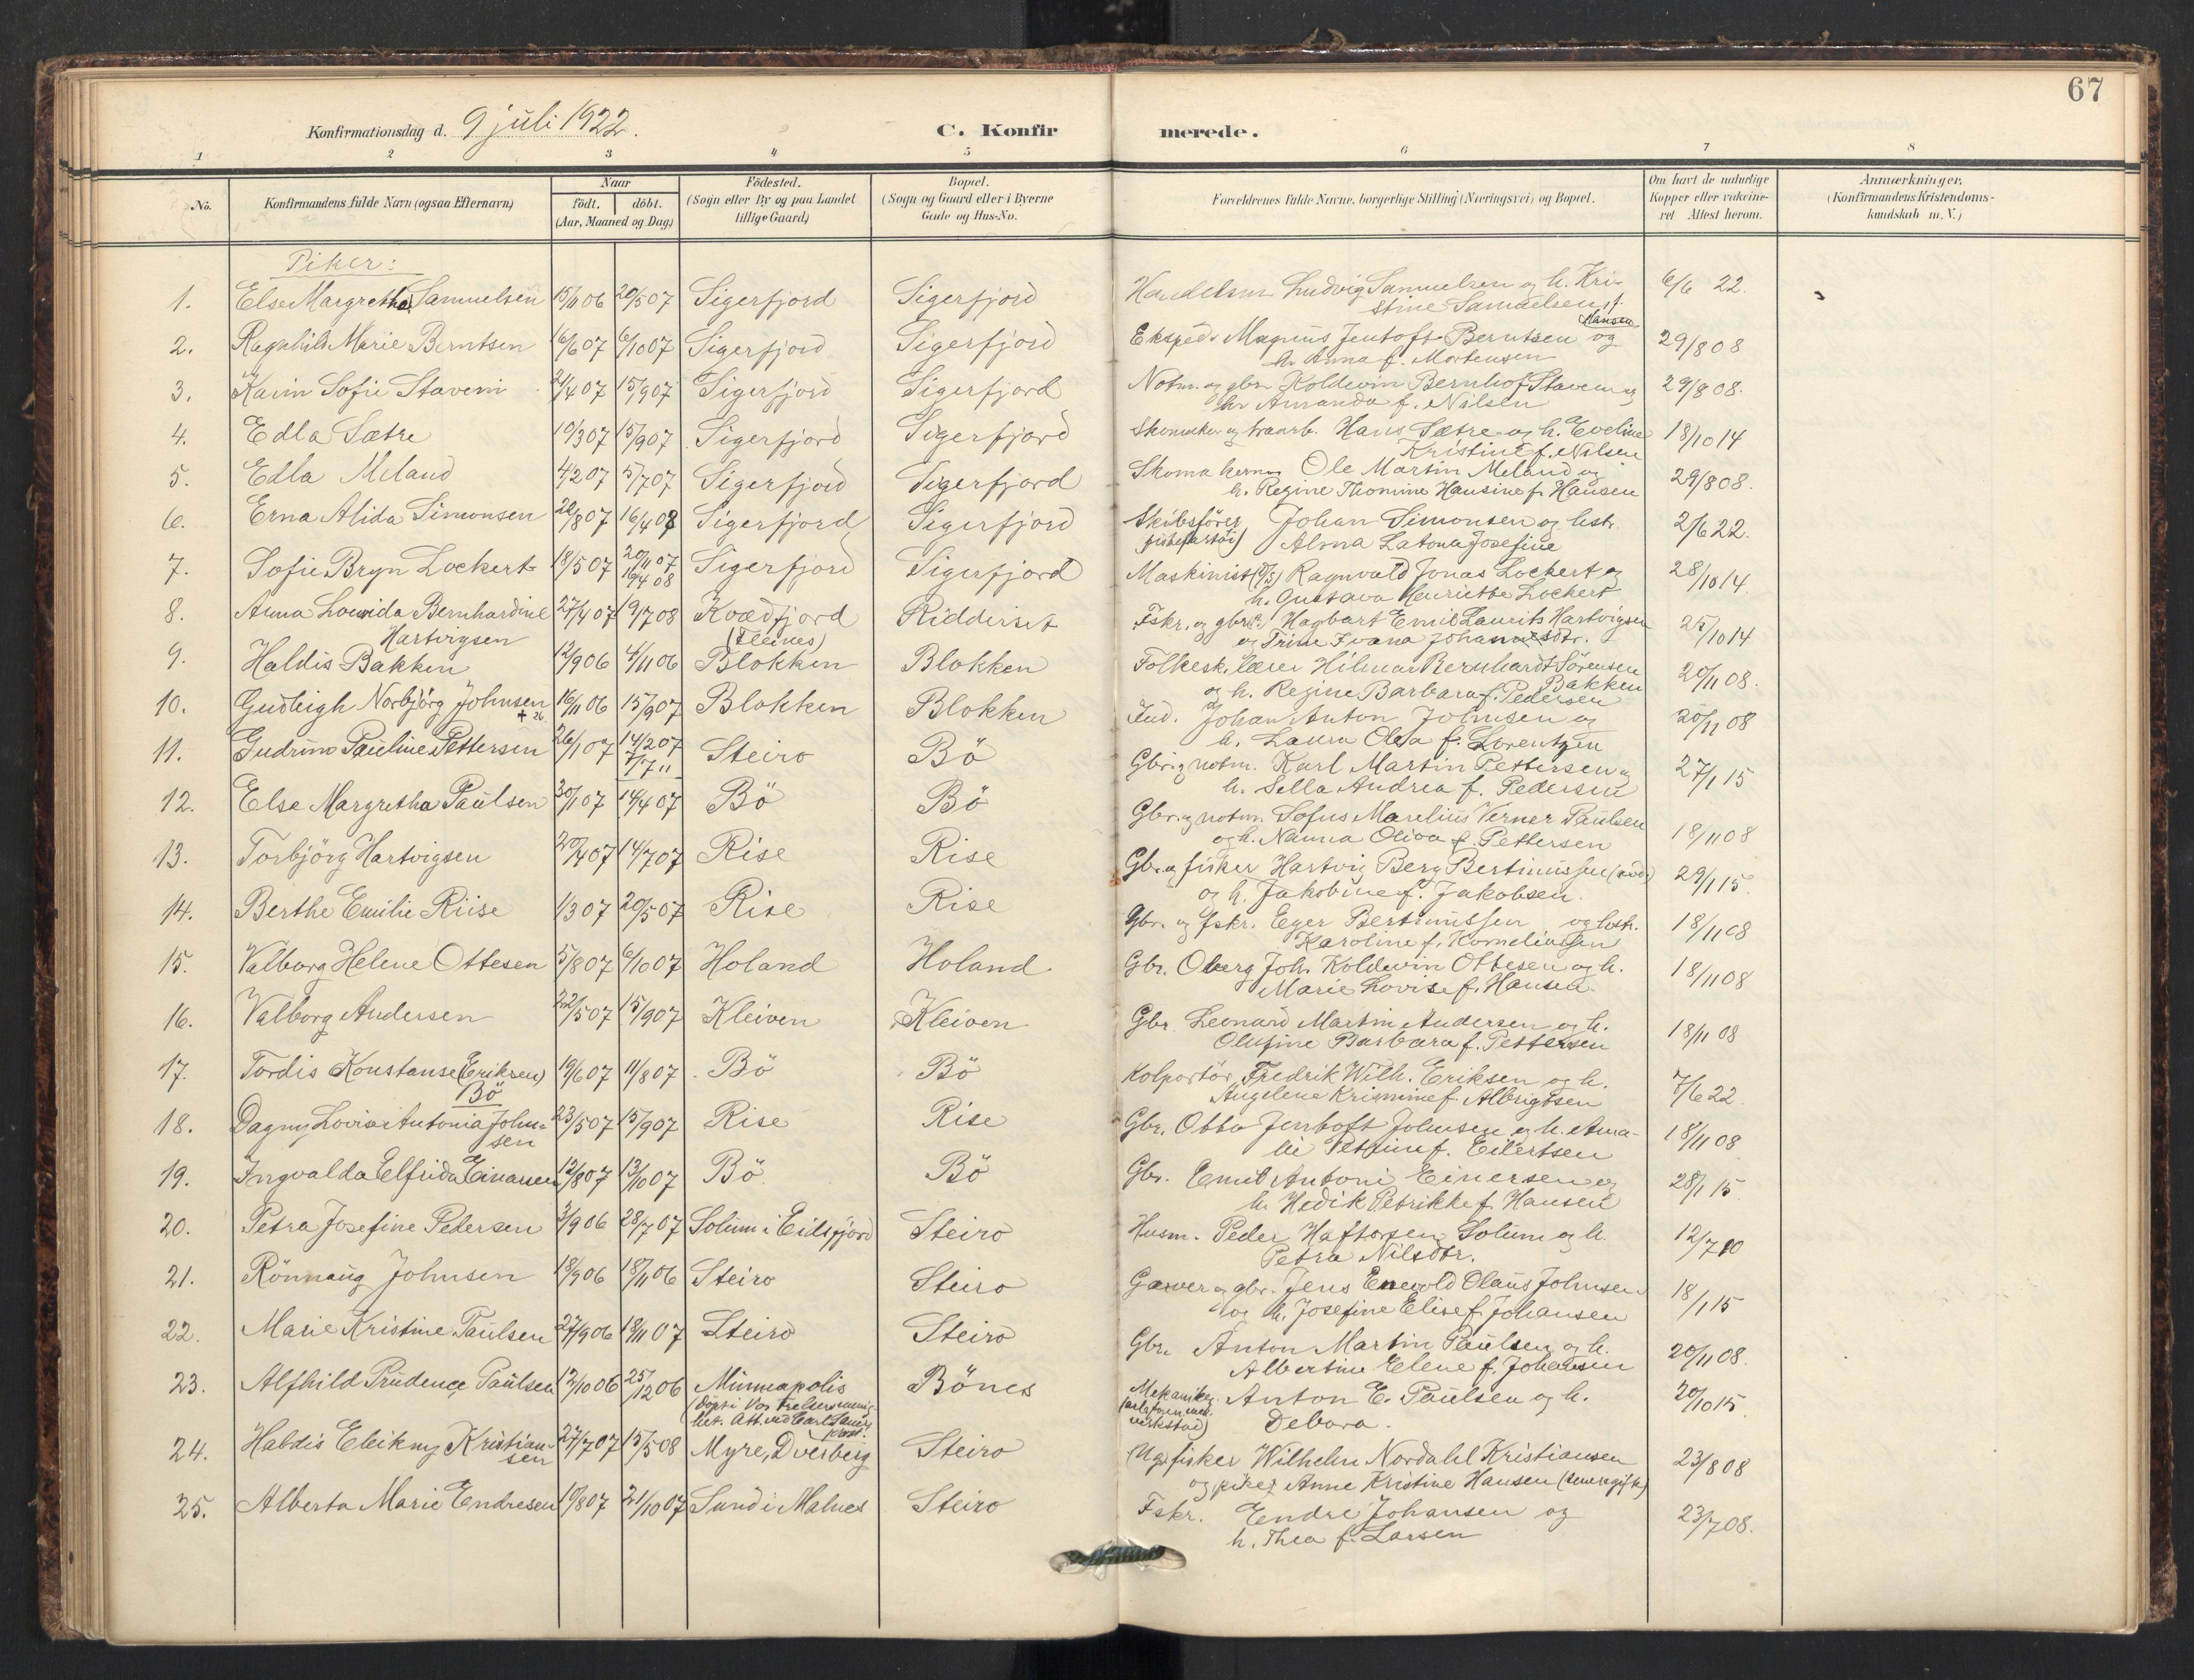 67
Konfirmationsdag d. 9 juli 1922.
C. Konfirmerede.
1 2 3 4 5 6 7 8
No.
Konfirmandens fulde Navn (ogsaa Efternavn)
Naar
födt. döbt.
(Aar, Maaned og Dag)
Födested.
(Sogn eller By og paa Landet
tillige Gaard)
Bopæl.
(Sogn og Gaard eller i Byerne
Gade og Hus-No.
Forældrenes fulde Navne, borgerlige Stilling (Næringsvei) og Bopæl.
Om havt de naturlige
Kopper eller vakcine-
ret Attest herom.
Anmærkninger.
(Konfirmandens Kristendoms-
kundskab m. V.)
Piker:
1. Else Margretha Samuelsen 15/11 06 20/5 07 Sigerfjord Sigerfjord Handelsm Ludvig Samuelsen og h. Kri- 6/6 22.
stine Samuelsen, f.
Hansen
2. Ragnhild Marie Berntsen 16/6 07 6/10 07 Sigerfjord Sigerfjord Eksped. Magnus Jentoft Berntsen og 29/8 08
h. Anna f. Mortensen
3. Karin Sofie Stavem 21/4 07 15/9 07 Sigerfjord Sigerfjord Notm. og gbr. Koldevin Bernhof Stavem og 29/8 08.
h. Amanda f. Nilsen
4. Edla Sætre 10/3 07 15/9 07 Sigerfjord Sigerfjord Skomaker og Hans Sætre og h. Eveline 18/10 14
Kristine f. Nilsen
5. Edla Meland 4/2 07 5/7 07 Sigerfjord Sigerfjord Ole Martin Meland og 29/8 08.
h. Regine Thomine Hansine f. Hansen
6. Erna Alida Simonsen 22/8 07 16/4 08 Sigerfjord Sigerfjord Skibsfører Johan Simonsen og hstr. 2/6 22.
Alma Latona Josefine
7. Sofie Bryn Lockert 18/5 07 20/11 07 Sigerfjord Sigerfjord Maskinist (D/S) Ragnvald Jonas Lockert og 28/10 14
16/4 08
h. Gustava Henriette Lockert
8. Anna Lovida Bernhardine 27/4 07 19/7 08 Kvædfjord Ridderset Fskr. og gbr. Hagbart Emil Laurits Hartvigsen 25/10 14
Hartvigsen (Fleines) og Trine Ivana Johannesdtr.
9. Haldis Bakken 12/9 06 4/11 06 Blokken Blokken Folkesk. lærer Hilmar Bernhardt Sörensen 20/11 08.
Bakken
og h. Regine Barbara f. Pedersen
10. Gudleigh Norbjörg Johnsen 16/11 06 15/9 07 Blokken Blokken Ind. Johan Anton Johnsen og 20/11 08
+ 26
h. Laura Olea f. Lorentzen
11. Gudrun Pauline Pettersen 26/1 07 14/2 07 Steiro Bö Gbr. og notm. Karl Martin Pettersen og 27/1 15
7/7 11
h. Sella Andrea f. Pedersen
12. Else Margretha Paulsen 30/1 07 14/4 07 Bö Bö Gbr. og notm. Sofus Marelius Verner Paulsen 18/11 08
og h. Nanna Oliva f. Pettersen
13. Torbjörg Hartvigsen 20/4 07 14/7 07 Rise Rise Gbr. og fisker Hartvig Berg Bertinussen 29/1 15.
og h. Jakobine f. Jakobsen.
14. Berthe Emilie Riise 1/3 07 20/5 07 Rise Rise Gbr. og fskr. Eger Bertinussen og hstr. 18/11 08
Karoline f. Korneliussen
15. Valborg Helene Ottesen 5/8 07 6/10 07 Holand Holand. Gbr. Oberg Joh. Koldevin Ottesen og h. 18/11 08
Marie Lovise f. Hansen
16. Valborg Andersen 22/5 07 15/9 07 Kleiven Kleiven Gbr. Leonard Martin Andersen og h. 18/11 08
Olufine Barbara f. Pettersen
17. Tordis Konstanse (Eriksen) 19/6 07 11/8 07 Bö Bö Kolportör Fredrik Wilh. Eriksen og h. 7/6 22
Bö Angelene f. Albrigtsen
18. Dagny Lovise Antonia John- 23/5 07 15/9 07 Rise Rise Gbr. Otto Jentoft Johnsen og h. Ama- 18/11 08
sen lie Petrine f. Eilertsen
19. Ingvalda Elfrida Einarsen 12/8 07 13/10 07 Bö Bö Gbr. Emil Antoni Einersen og 28/1 15.
h. Hedik Petrikke f. Hansen
20. Petra Josefine Pedersen 3/9 06 28/7 07 Solum i Eidsfjord Steiro Husm. Peder Haftorsen Solum og h. 12/7 10
Petra Nilsdtr.
21. Rönnaug Johnsen 18/9 06 18/11 06 Steiro Steiro Garver og gbr. Jens Enevold Olaus Johnsen 18/1 15
og h. Josefine Elise f. Johansen
22. Marie Kristine Paulsen 27/9 06 18/11 07 Steiro Steiro Gbr. Anton Martin Paulsen og h. 20/11 08.
Albertine Elene f. Johansen
23. Alfhild Prudence Paulsen 12/10 06 25/12 06 Minneapolis Bönes Mekaniker Anton E. Paulsen og h. 20/10 15.
(Döpt i Vor Frelsers menig-
het. Att. ved Carl
verkstad) Debora.
24. Haldis Eleikny Kristian- 27/7 07 15/5 08 Myre, Dverberg Steiro Ug. fisker Wilhelm Nordahl Kristiansen 23/8 08
sen og pike Anne Kristine Hansen
25. Alberta Marie Endresen 10/8 07 21/10 07 Sund i Malnes Steiro Fskr. Endre Johansen og 23/7 08.
h. Thea f. Larsen